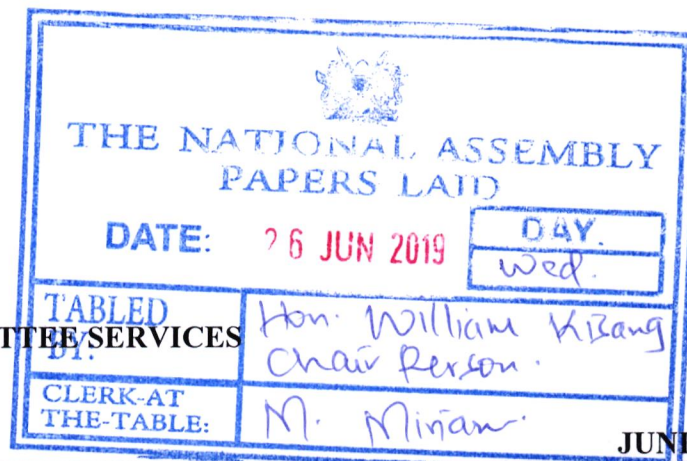 THE NATIONAL ASSEMBLY
PAPERS LAID
DATE: 26 JUN 2019
DAY.
Wed.
TABLED BY:
Hon. William Kisang
Chair Person.
TTEE SERVICES
CLERK-AT
THE-TABLE:
M.
JUN